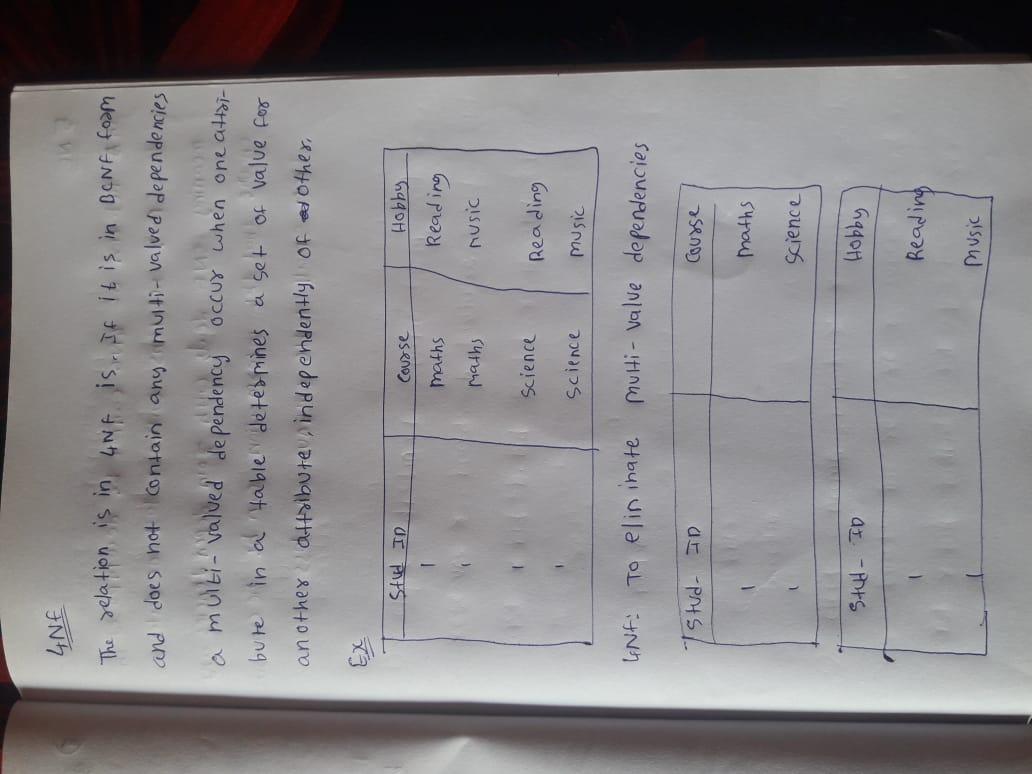 4NF
The relation is in 4NF is. If it is in BCNF foam
and does not contain any multi-valued dependencies
a multi-valued dependency occur when one attri-
bute in a table determines a set of value for
another attribute, independently of other.
Ex
Stud ID Course Hobby
1 maths Reading
1 maths music
1 science Reading
1 science music
4NF: To eliminate multi-value dependencies
Stud-ID Course
1 maths
1 science
Stud-ID Hobby
1 Reading
1 music